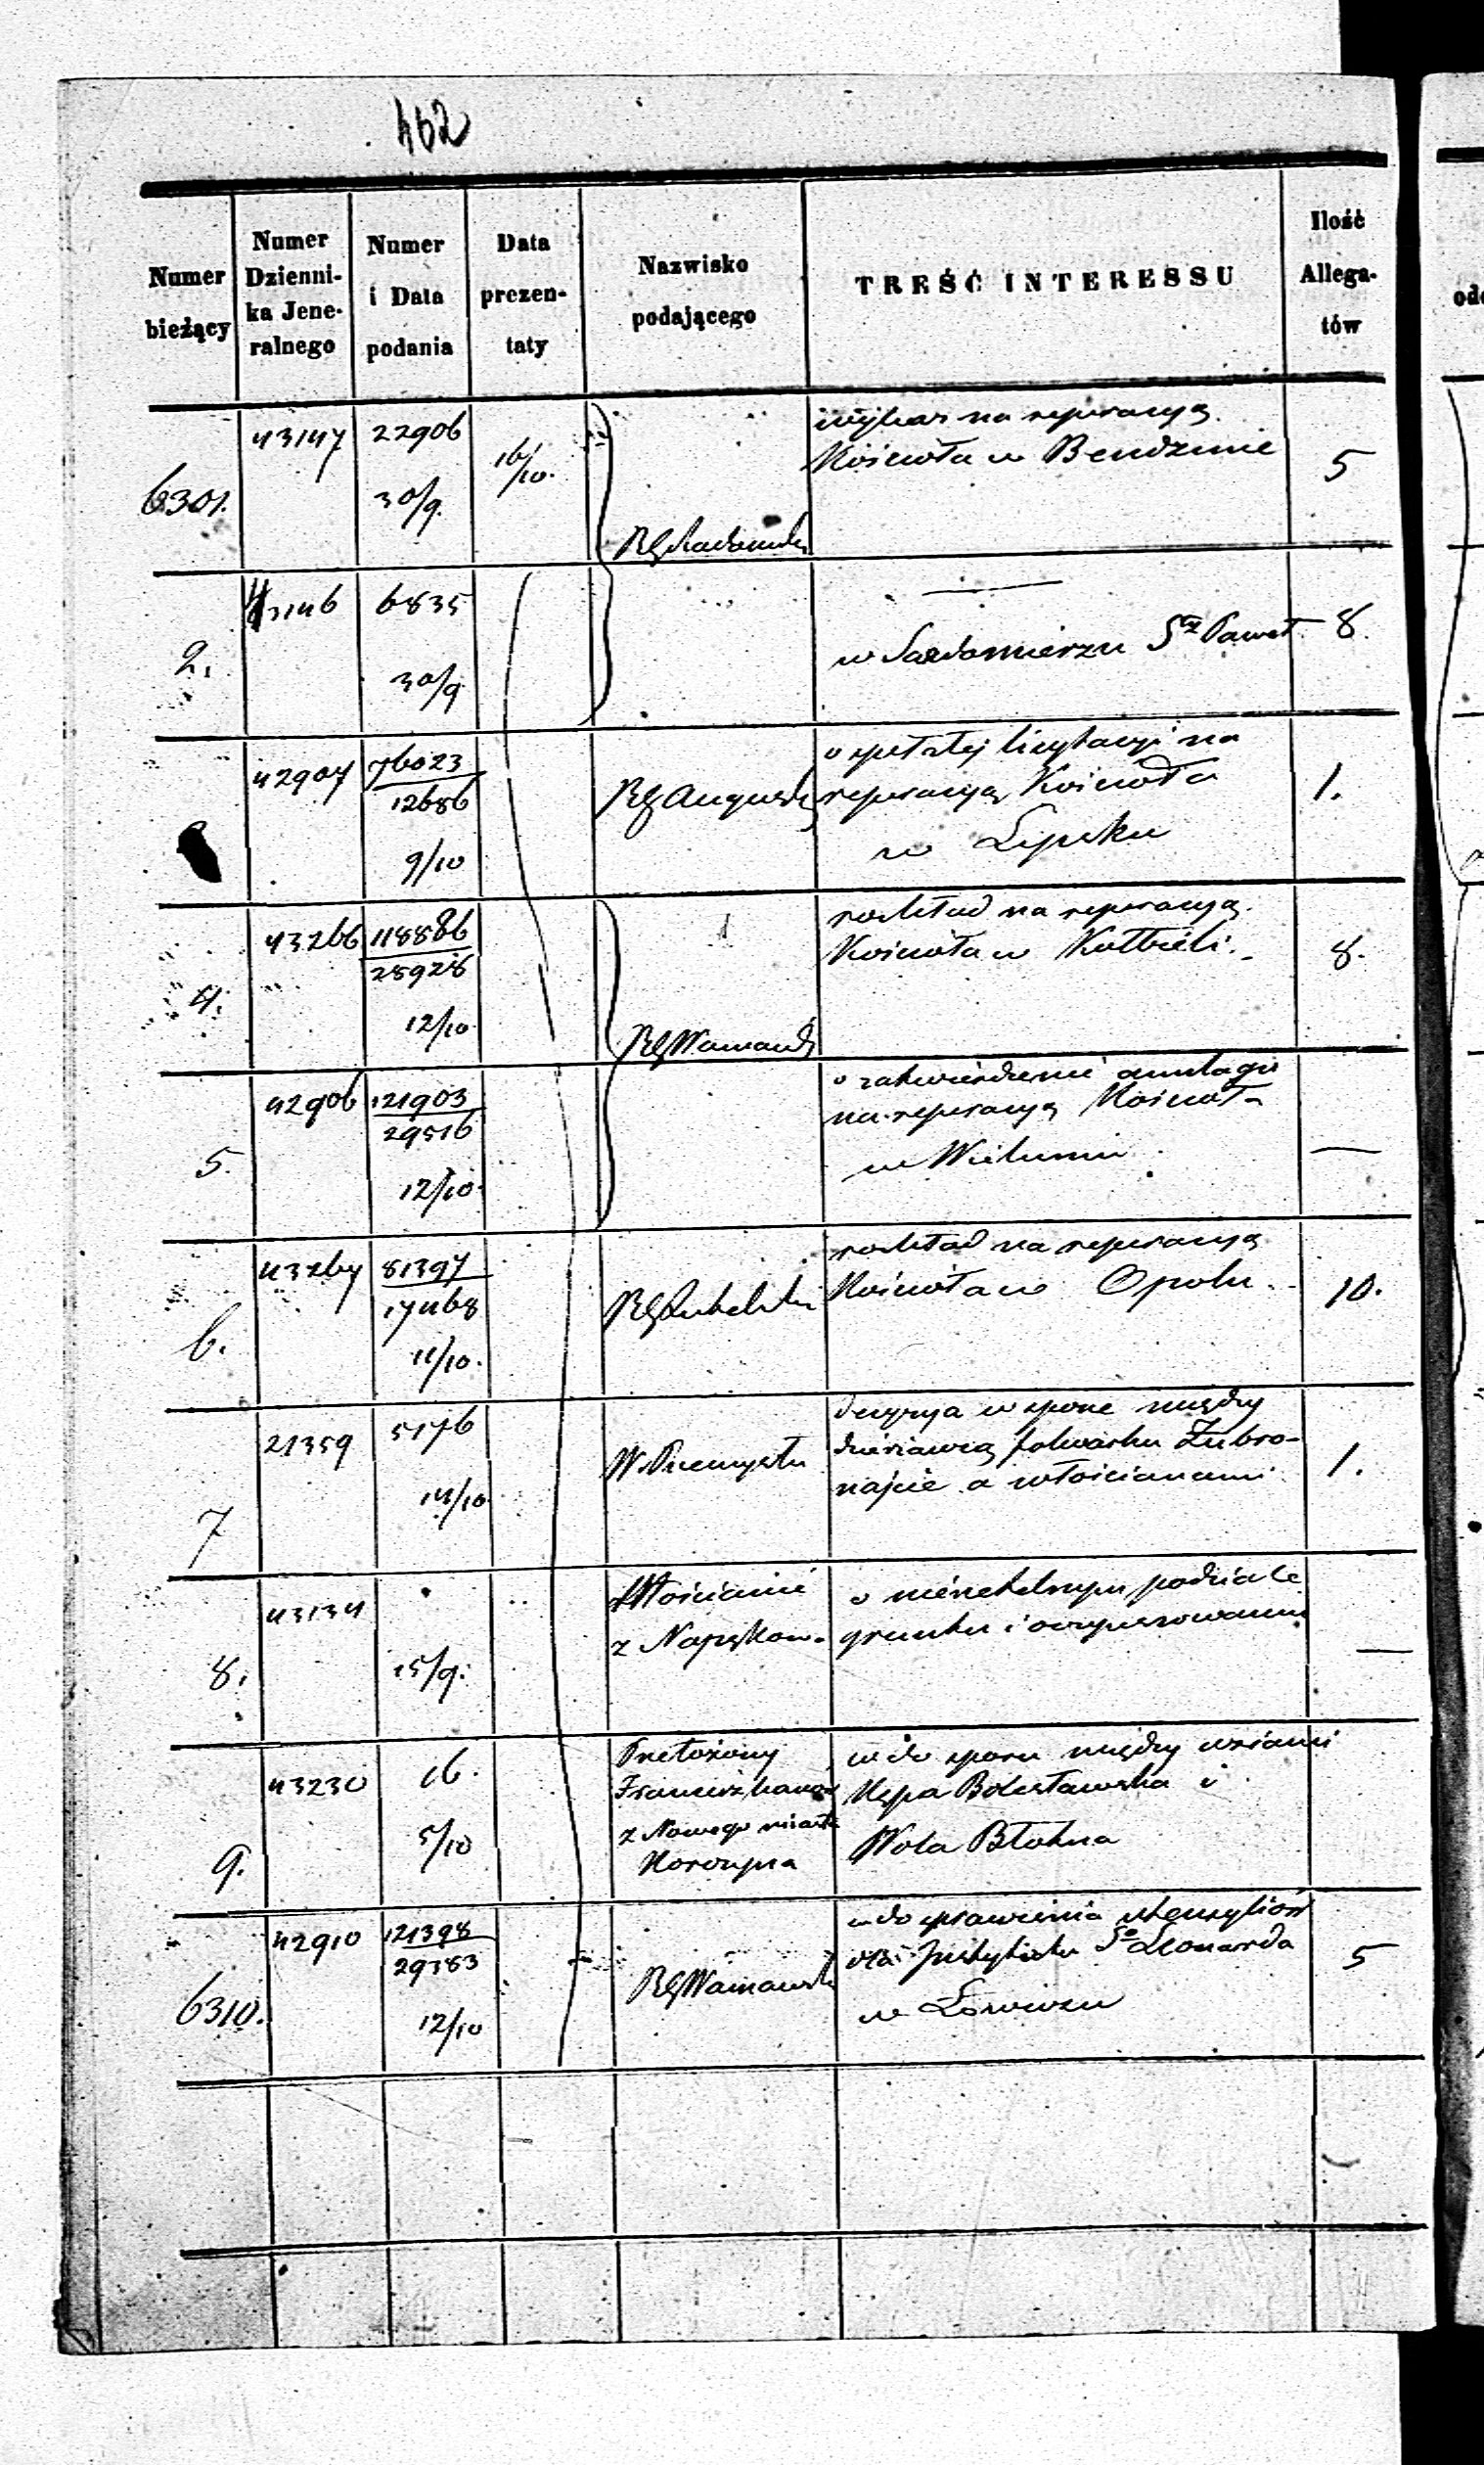 462
Numer bieżący
Numer Dzienni-
ka Jene-
ralnego
Numer
i Data
podania
Data
prezen-
taty
Nazwisko
podającego
TREŚĆ INTERESSU
Ilość
Allega-
tów
6301.
43147
22906
30/9.
16/10.
RGRadomski
wykaz na reperacyą
Kościoła w Bendzinie
5
2.
43146
6835
30/9
w Sandomierzu Sgo Paweł
8.
42907
76023
12686
9/10
RGAugustow
o spełzłej licytacyi na
reperacyą Kościoła
w Lipsku
1.
4.
43266
118886
28928
12/10
RGWarszawski
rozkład na reperacyą
Kościoła w Kołbieli.
8.
5.
42906
121903
29516
12/10.
o zatwierdzenie anszlagu
na reperacyą Kościoła
w Wieluniu
—
6.
43267
81397
17468
11/10.
RGLubelski
rozkład na reperacyą
Kościoła w Opolu
10.
7
21359
5176
14/10
W. Przemysłu
decyzya w sporze między
dzierżawcą folwarku Zubro-
najcie a włościanami
1.
8.
43134
15/9.
Włościanie
z
o nierzetelnym podziale
gruntu i
—
9.
43230
16.
5/10
Przełożony
Franciszkanów
z Nowego miasta
Korczyna
wdo sporu między wsiami
Kępa Bolesławska i
Wola Błotna
6310.
42910
121398
29383
12/10
RGWarszawski
wdo sprawienia utensyliów
dla Instytutu Sgo Leonarda
w Łowiczu
5